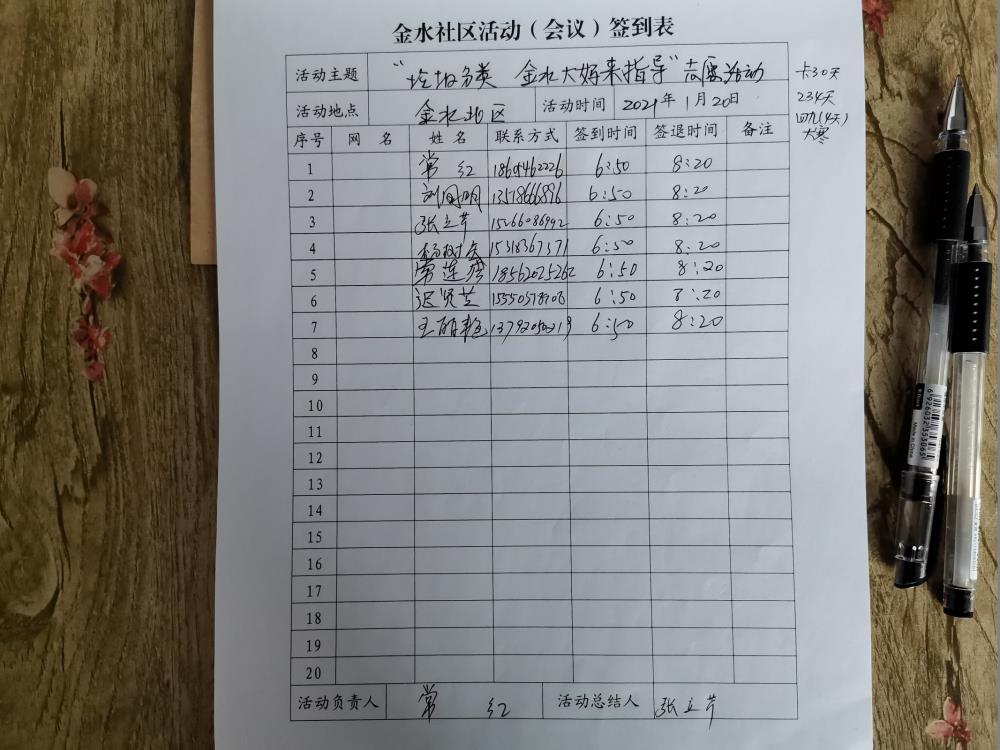 金水社区活动（会议）签到表
活动主题 “垃圾分类 金水大妈来指导”志愿活动
卡30天
234天
四九(4天)
大寒
活动地点 金水地区 活动时间 2021年1月20日
序号 网 名 姓 名 联系方式 签到时间 签退时间 备注
1 常 红 6:50 8:20
2 刘同明 13518666896 6:50 8:20
3 张立芹 15266086992 6:50 8:20
4 杨树 15318367371 6:50 8:20
5 常莲 18562025262 6:50 8:20
6 迟贤芝 6:50 8:20
7 王丽艳 6:50 8:20
8
9
10
11
12
13
14
15
16
17
18
19
20
活动负责人 常 红 活动总结人 张立芹
6926032353065
Made in China